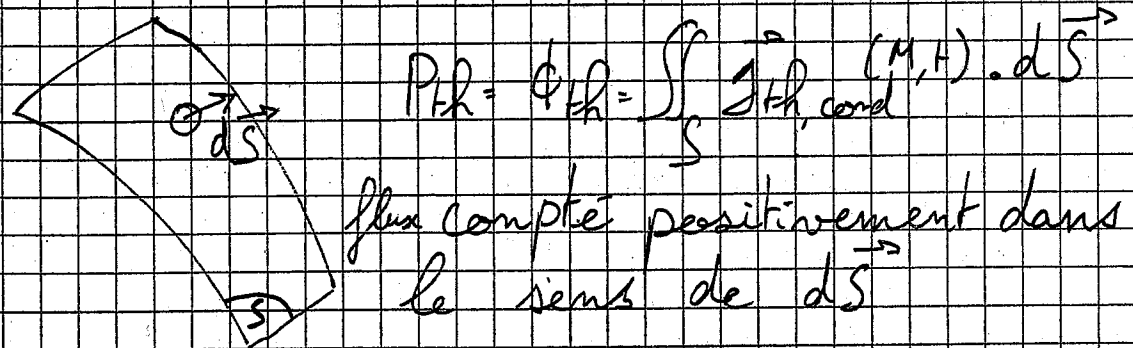 P_th = ϕ_th = ∬_S J⃗_th,cond (M,t) . dS⃗
dS⃗
flux compté positivement dans
le sens de dS⃗
S